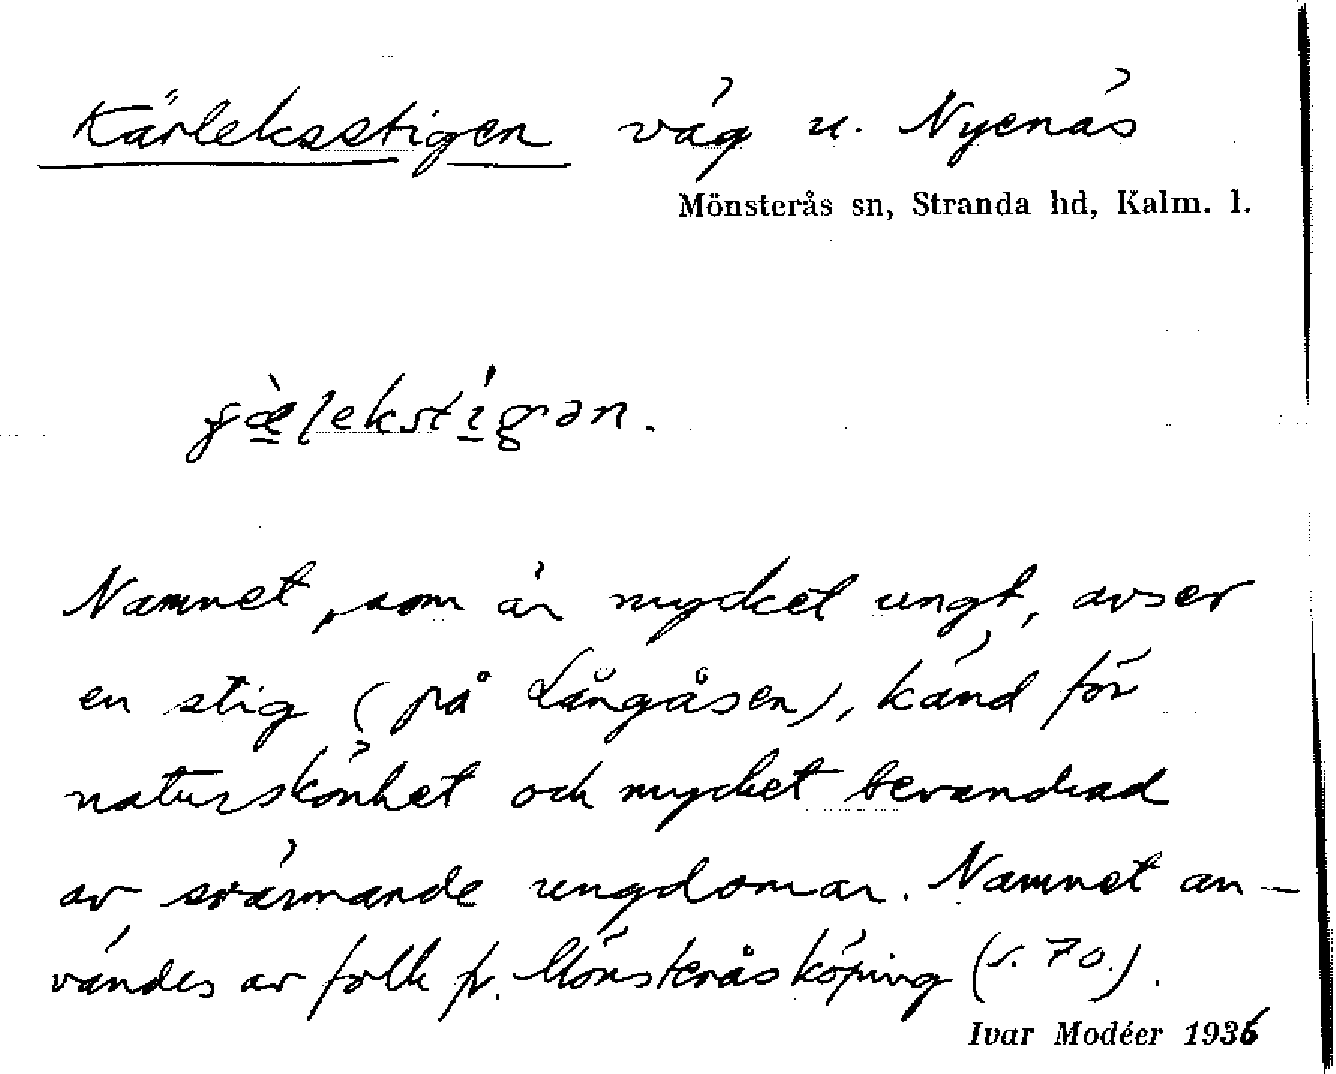 Kärleksstigen väg u. Nyenäs
Mönsterås sn, Stranda hd, Kalm. l.
Namnet, som är mycket ungt, avser
en stig (på Långåsen), känd för
naturskönhet och mycket bevandrad
av svärmande ungdomar. Namnet an-
vändes av folk fr. Mönsterås köping (s. 70.).
Ivar Modéer 1936